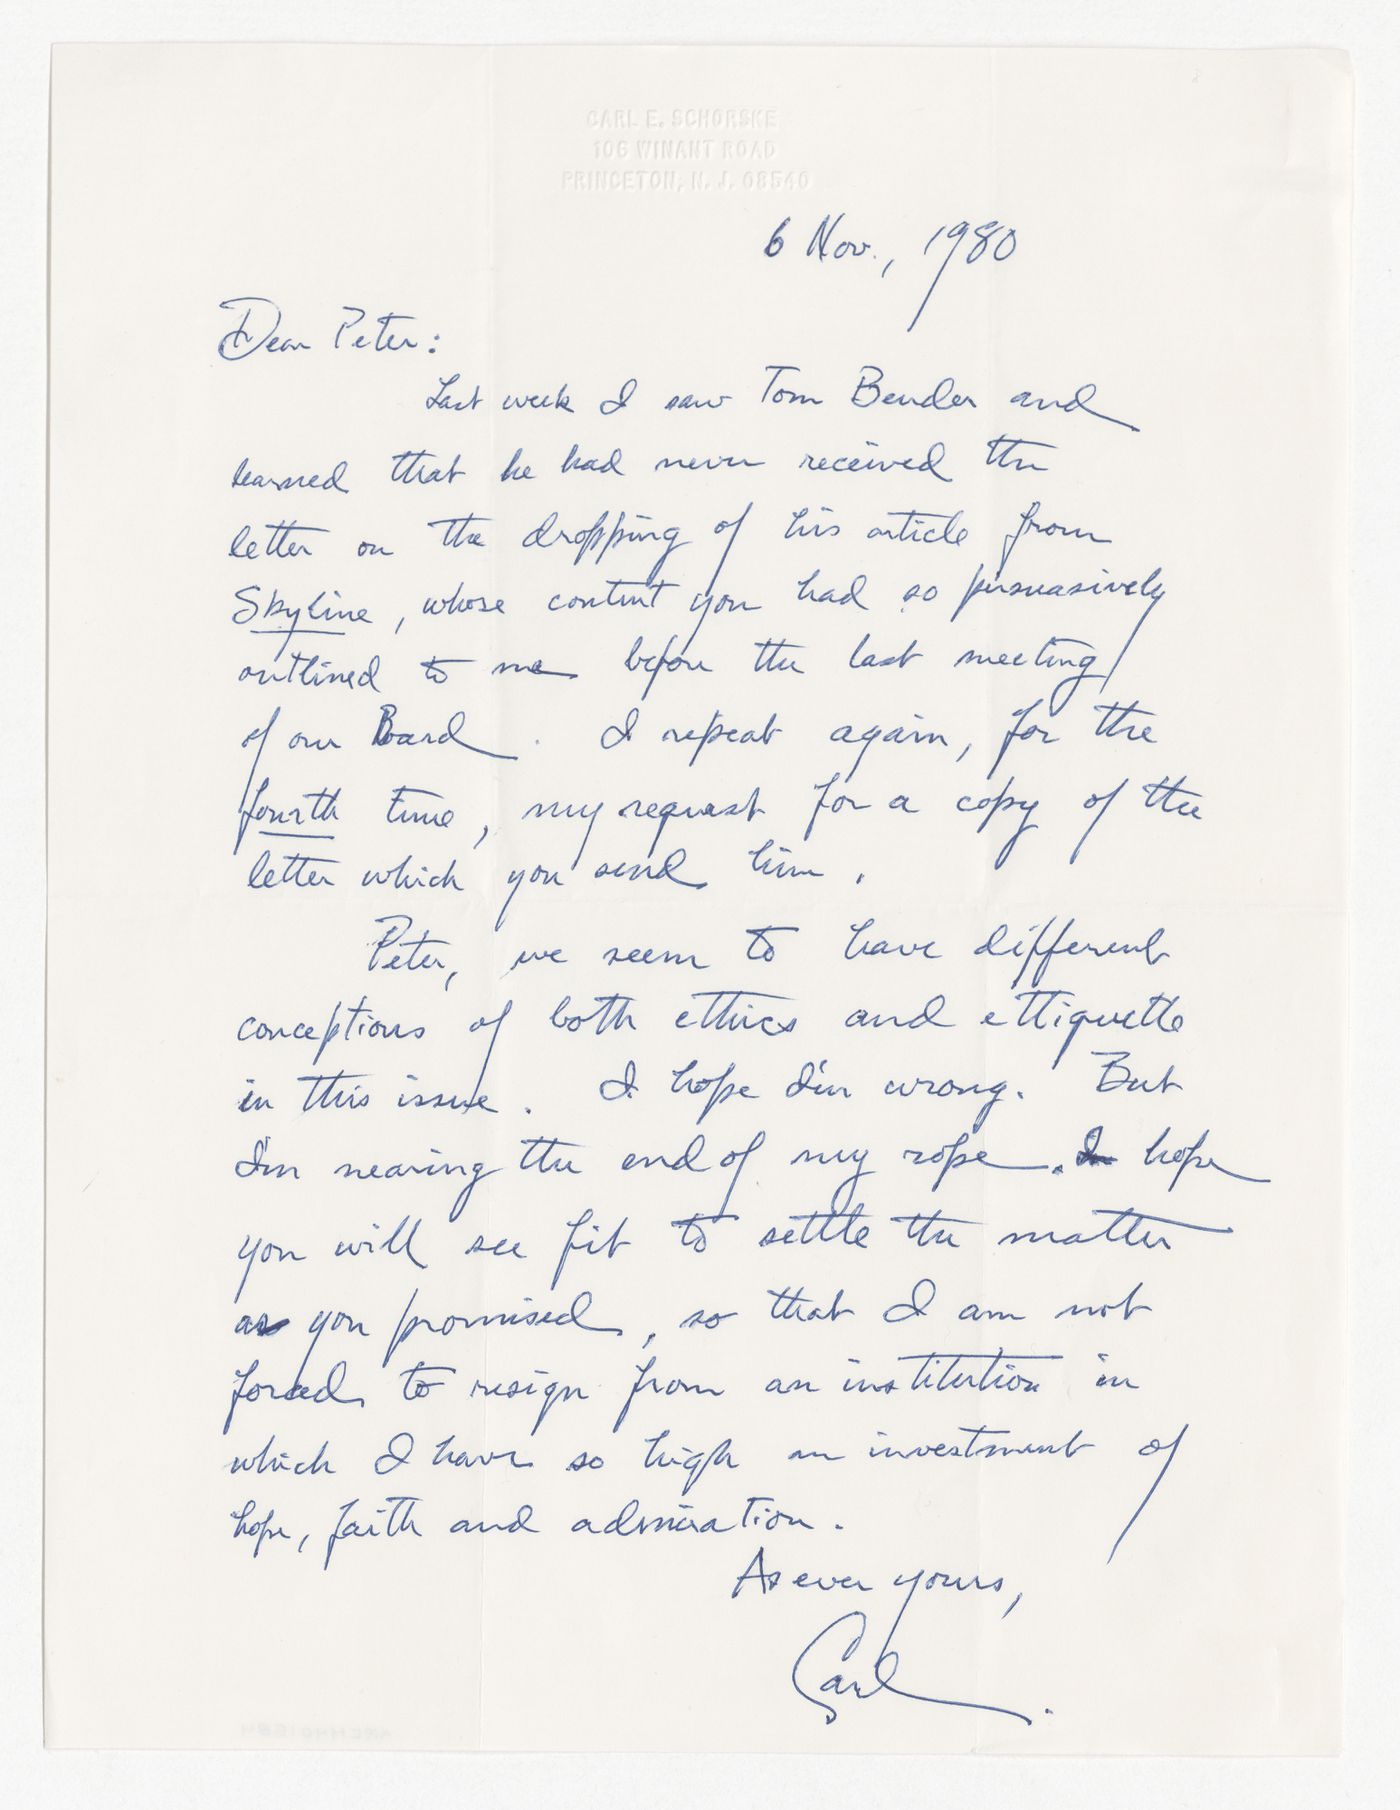 CARL E. SCHORSKE
106 WINANT ROAD
PRINCETON, N. J. 08540
6 Nov., 1980
Dear Peter:
Last week I saw Tom Bender and
learned that he had never received the
letter on the dropping of his article from
Skyline, whose content you had so persuasively
outlined to me before the last meeting
of our Board. I repeat again, for the
fourth time, my request for a copy of the
letter which you send him.
Peter, we seem to have different
conceptions of both ethics and ettiquette
in this issue. I hope I'm wrong. But
I'm nearing the end of my rope. I hope
you will see fit to settle the matter
as you promised, so that I am not
forced to resign from an institution in
which I have so high an investment of
hope, faith and admiration.
As ever yours,
Carl.